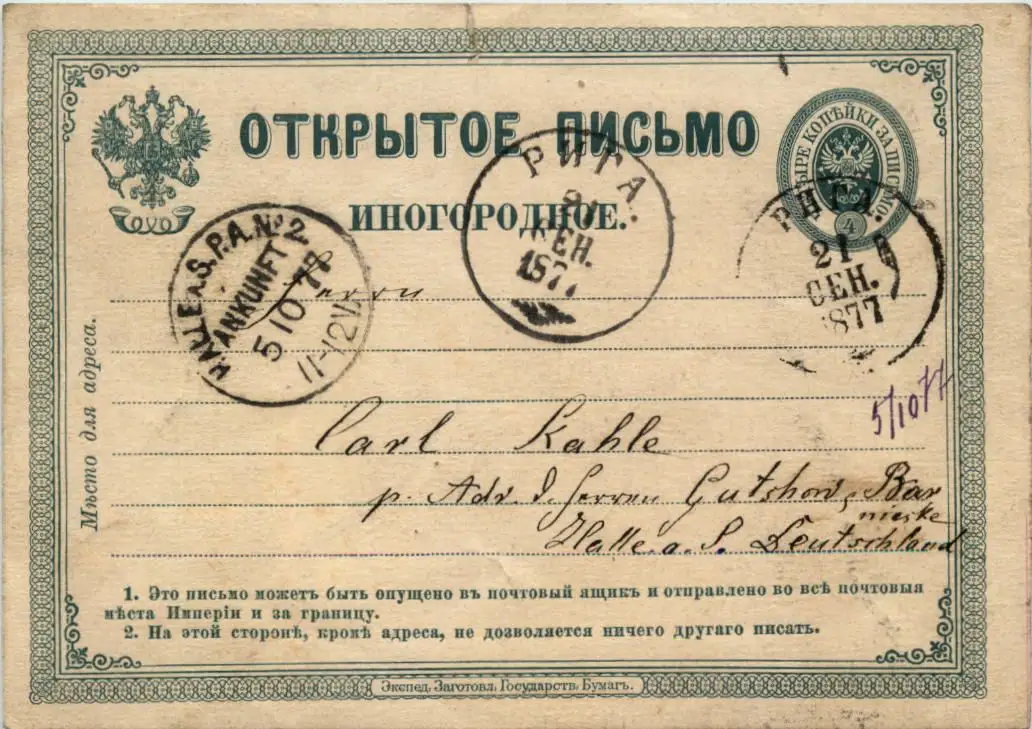 ОТКРЫТОЕ ПИСЬМО
ИНОГОРОДНОЕ.
ЧЕТЫРЕ КОПѢЙКИ ЗА ПИСЬМО.
4
РИГА.
21
СЕН.
1877
РИГА.
21
СЕН.
1877
HALLE A.S. P.A. No 2.
ANKUNFT
5 10 77
11-12 V.
Herrn
Мѣсто для адреса.
5/10 77
Carl Kahle
p. Adr. d. Herren Gutshow, Bar
nieske
Halle a. S. Deutschland
1. Это письмо можетъ быть опущено въ почтовый ящикъ и отправлено во всѣ почтовыя
мѣста Имперіи и за границу.
2. На этой сторонѣ, кромѣ адреса, не дозволяется ничего другаго писать.
Экспед. Заготовл. Государств. Бумагъ.